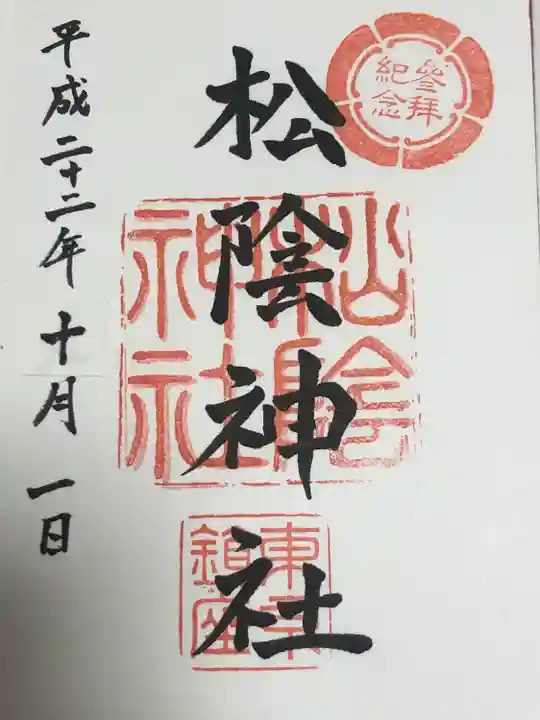 參拜
紀念
松陰神社
松陰
神社
東京
鎮座
平成二十二年十月一日